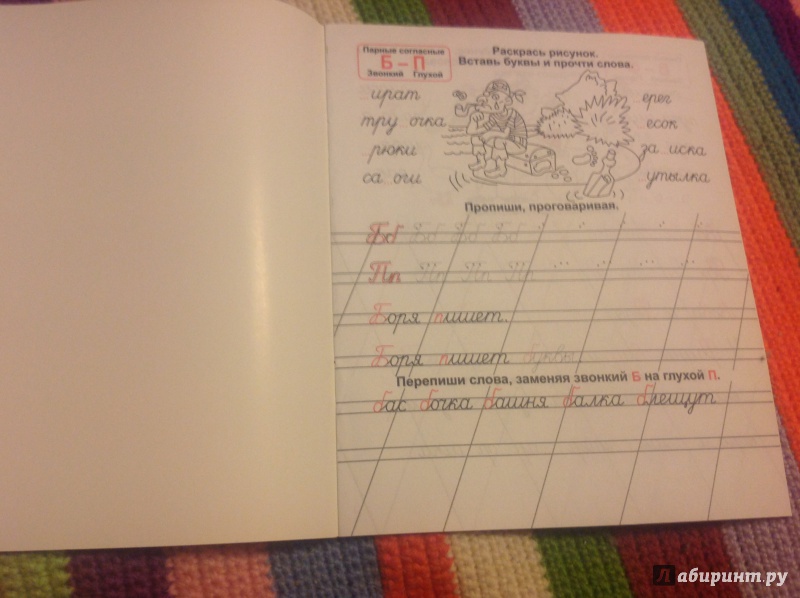 Парные согласные
Б – П
Звонкий Глухой
Раскрась рисунок.
Вставь буквы и прочти слова.
ират
тру очка
рюки
са оги
ерег
есок
за иска
утылка
Пропиши, проговаривая.
Бб Бб Бб Бб
Пп Пп Пп Пп
Боря пишет.
Боря пишет буквы
Перепиши слова, заменяя звонкий Б на глухой П.
бас бочка башня балка блещут
Лабиринт.ру